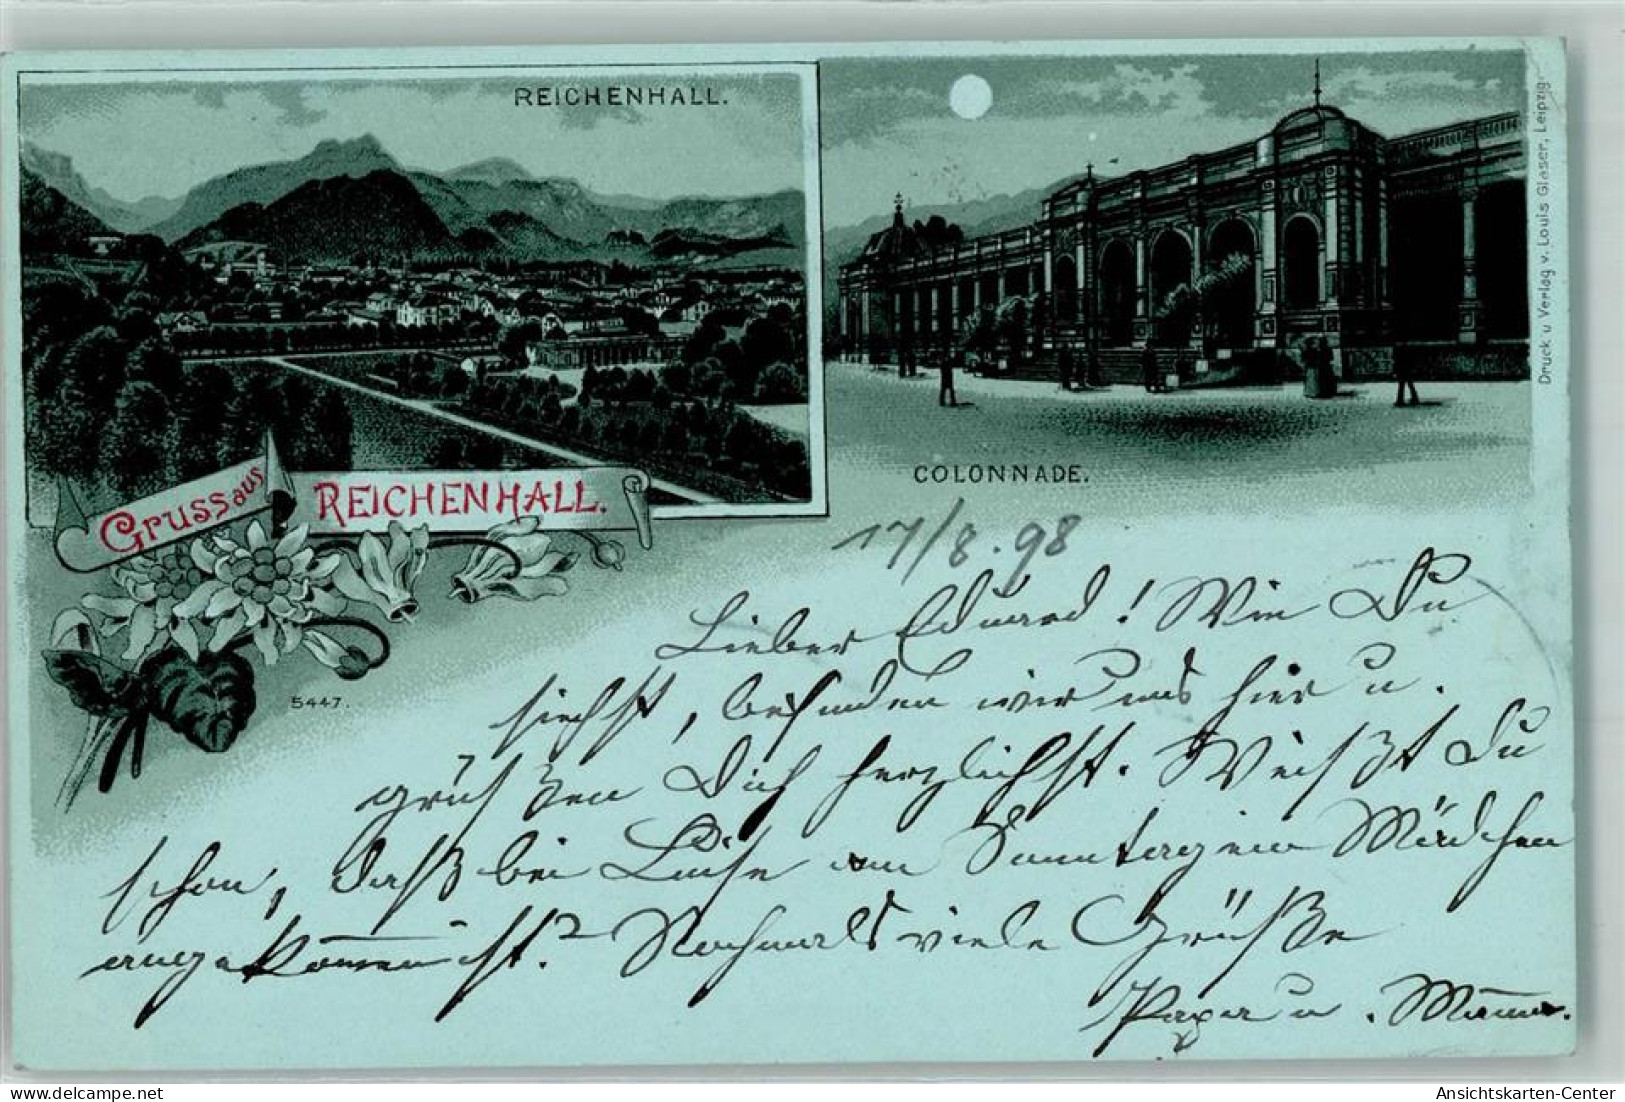 REICHENHALL.
COLONNADE.
Druck u Verlag v. Louis Glaser, Leipzig.
Gruss aus
REICHENHALL.
5447.
17/8.98
Lieber Eduard! Wie Du
siehst, befinden wir uns hier u.
grüßen Dich herzlichst. Weißt Du
schon, daß bei Luise am Sonntag ein Mädchen
angekommen ist? Nochmals viele Grüße
Papa u. Mama.
Ansichtskarten-Center